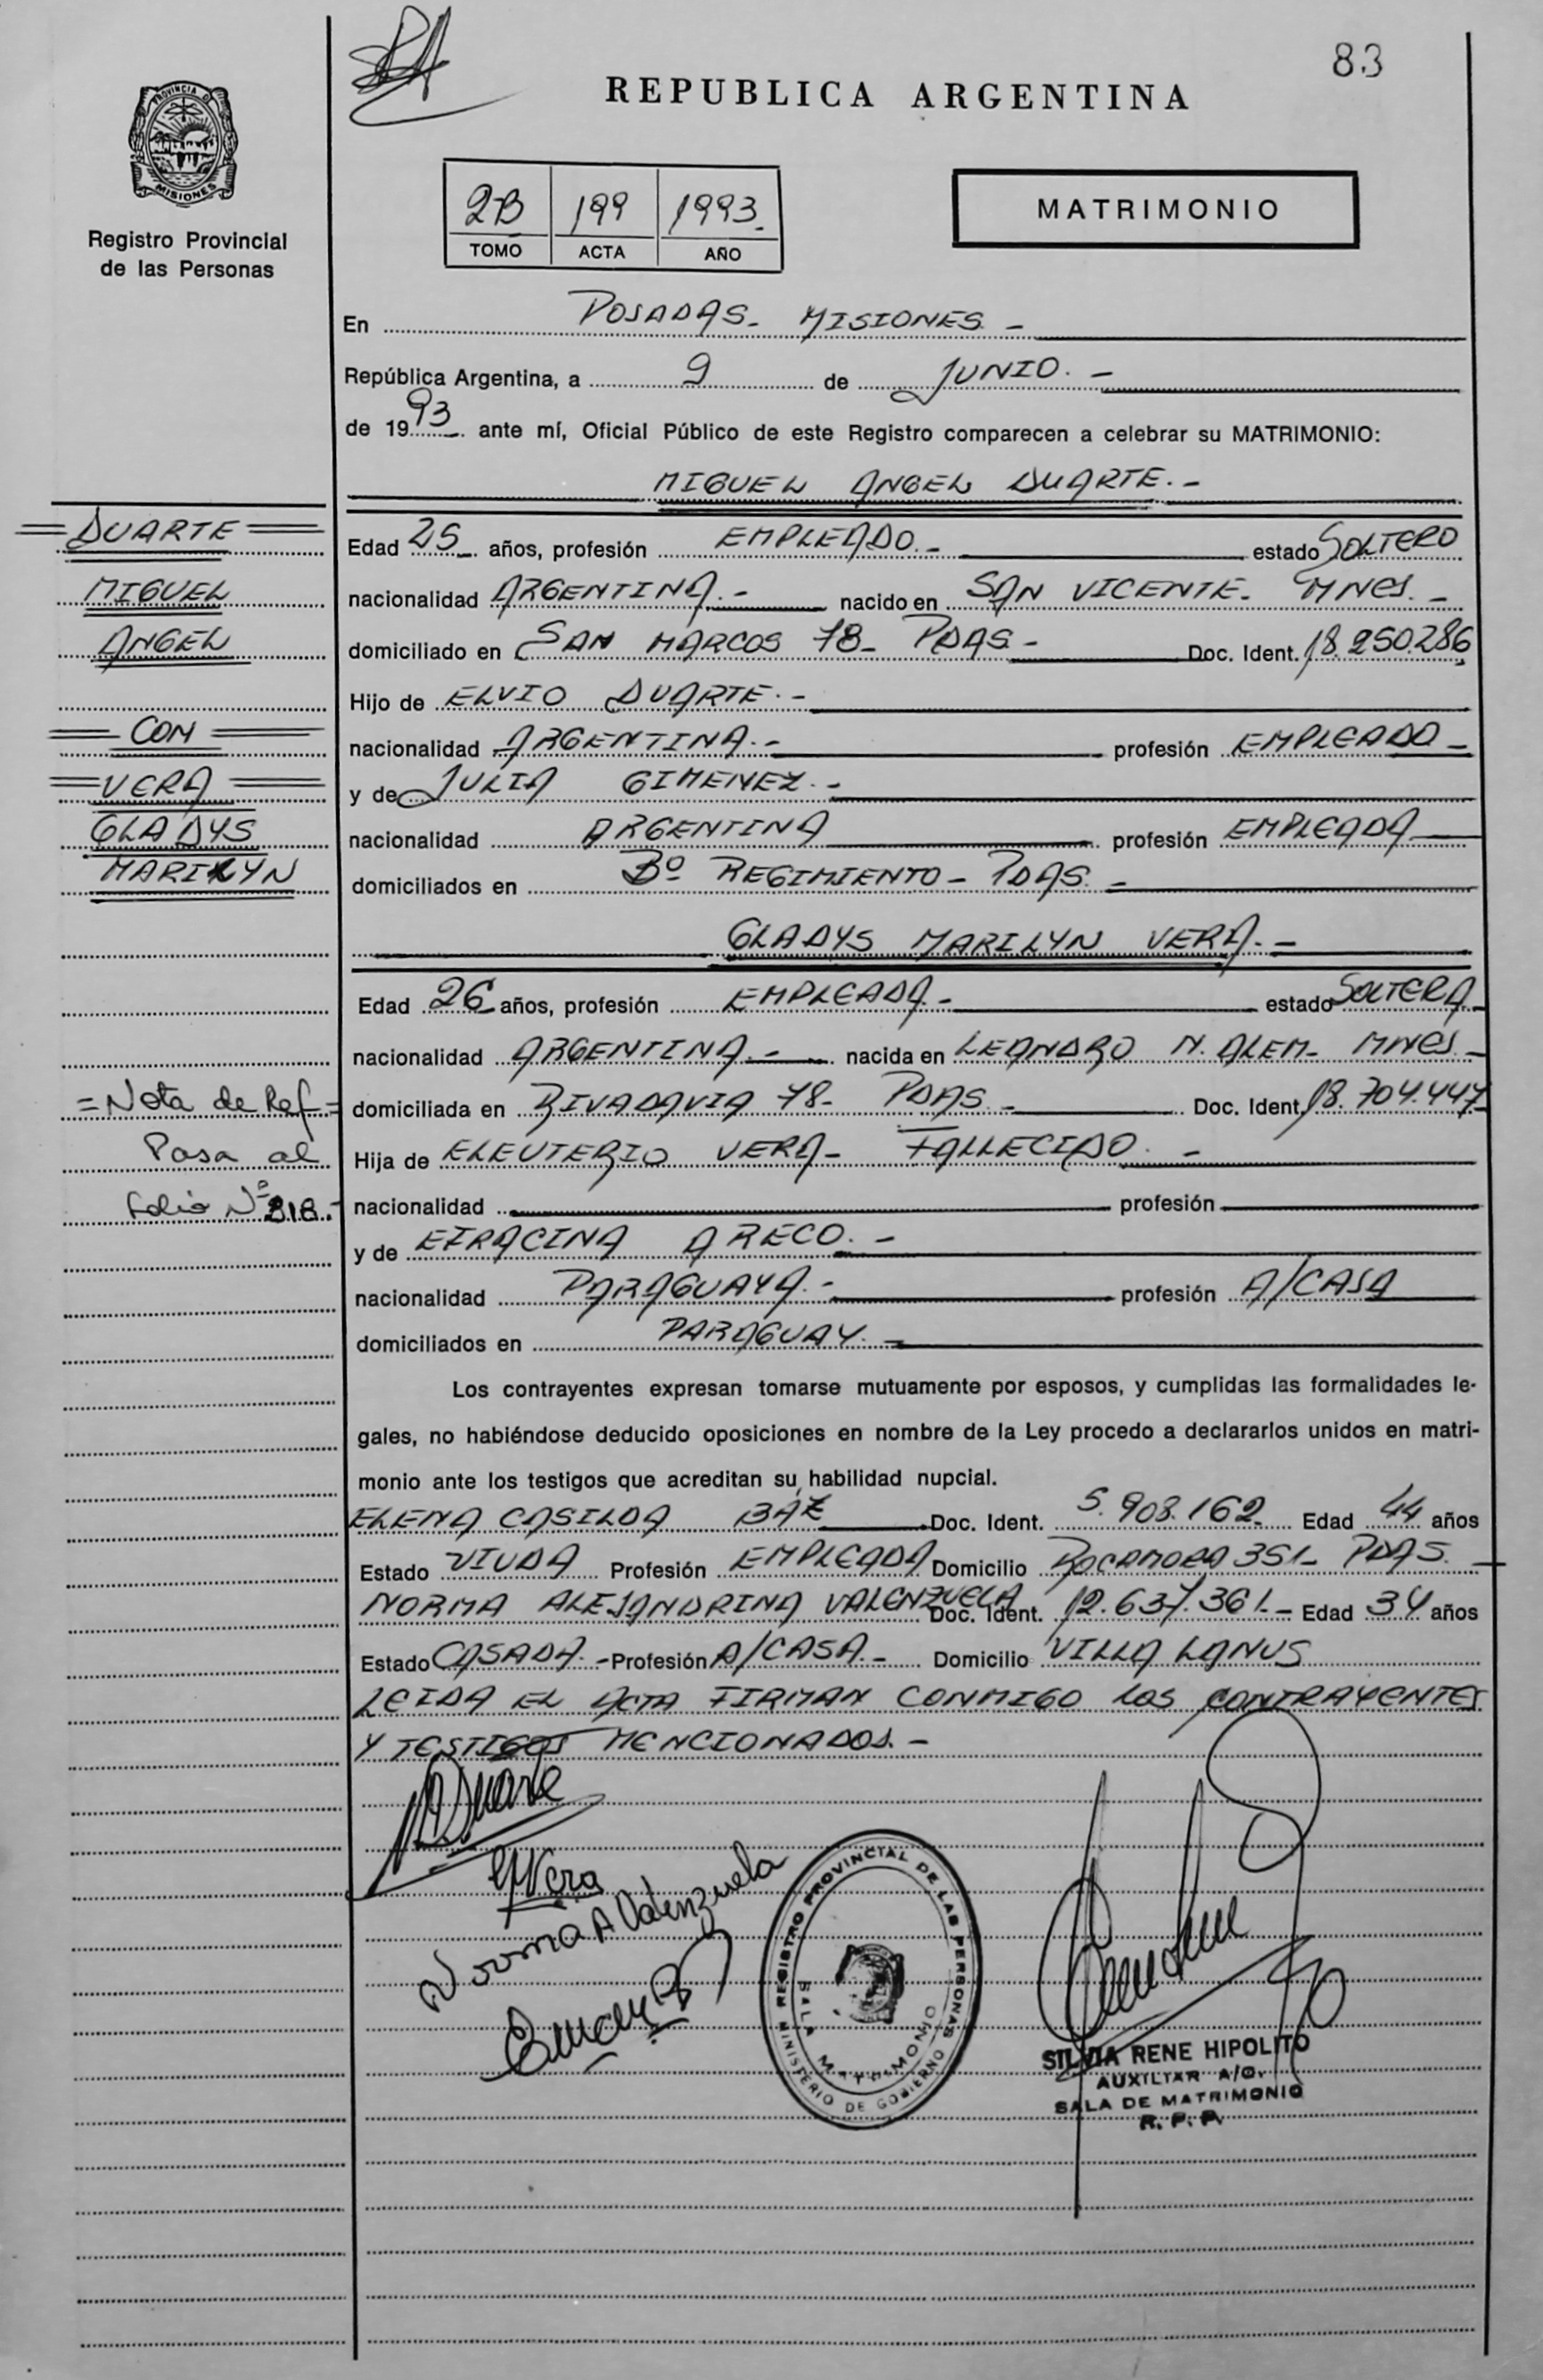 83
REPUBLICA ARGENTINA
PROVINCIA D
MISIONES
Registro Provincial
de las Personas
2B 199 1993.
TOMO ACTA AÑO
MATRIMONIO
En POSADAS- MISIONES -
República Argentina, a 9 de JUNIO. -
de 1993 ante mí, Oficial Público de este Registro comparecen a celebrar su MATRIMONIO:
MIGUEL ANGEL DUARTE. -
= DUARTE =
MIGUEL
ANGEL
= CON =
= VERA =
GLADYS
MARILYN
Edad 25 años, profesión EMPLEADO - estado SOLTERO
nacionalidad ARGENTINA. - nacido en SAN VICENTE- MNES. -
domiciliado en SAN MARCOS 78- PDAS - Doc. Ident. 18.250.286
Hijo de ELVIO DUARTE. -
nacionalidad ARGENTINA. - profesión EMPLEADO -
y de JULIA GIMENEZ. -
nacionalidad ARGENTINA profesión EMPLEADA
domiciliados en Bº REGIMIENTO - PDAS -
GLADYS MARILYN VERA. -
Edad 26 años, profesión EMPLEADA - estado SOLTERA
nacionalidad ARGENTINA. - nacida en LEANDRO N. ALEM- MNES -
domiciliada en RIVADAVIA 78- PDAS - Doc. Ident. 18.704.447
Hija de ELEUTERIO VERA - FALLECIDO. -
nacionalidad profesión
y de ARECO. -
nacionalidad PARAGUAYA. - profesión A/CASA
domiciliados en PARAGUAY. -
= Nota de Ref =
Pasa al
folio Nº 318.-
Los contrayentes expresan tomarse mutuamente por esposos, y cumplidas las formalidades le-
gales, no habiéndose deducido oposiciones en nombre de la Ley procedo a declararlos unidos en matri-
monio ante los testigos que acreditan su habilidad nupcial.
ELENA CASILDA BAEZ Doc. Ident. 5.908.162 Edad 44 años
Estado VIUDA Profesión EMPLEADA Domicilio ROCAMORA 351- PDAS. -
NORMA ALEJANDRINA VALENZUELA Doc. Ident. 12.637.361.- Edad 34 años
Estado CASADA. - Profesión A/CASA. - Domicilio VILLA LANUS
LEIDA EL ACTA FIRMAN CONMIGO LOS CONTRAYENTES
Y TESTIGOS MENCIONADOS. -
Duarte
Vera
Norma A Valenzuela
REGISTRO PROVINCIAL DE LAS PERSONAS
MINISTERIO DE GOBIERNO
SALA MATRIMONIO
SILVIA RENE HIPOLITO
AUXILIAR A/C.
SALA DE MATRIMONIO
R. P. P.